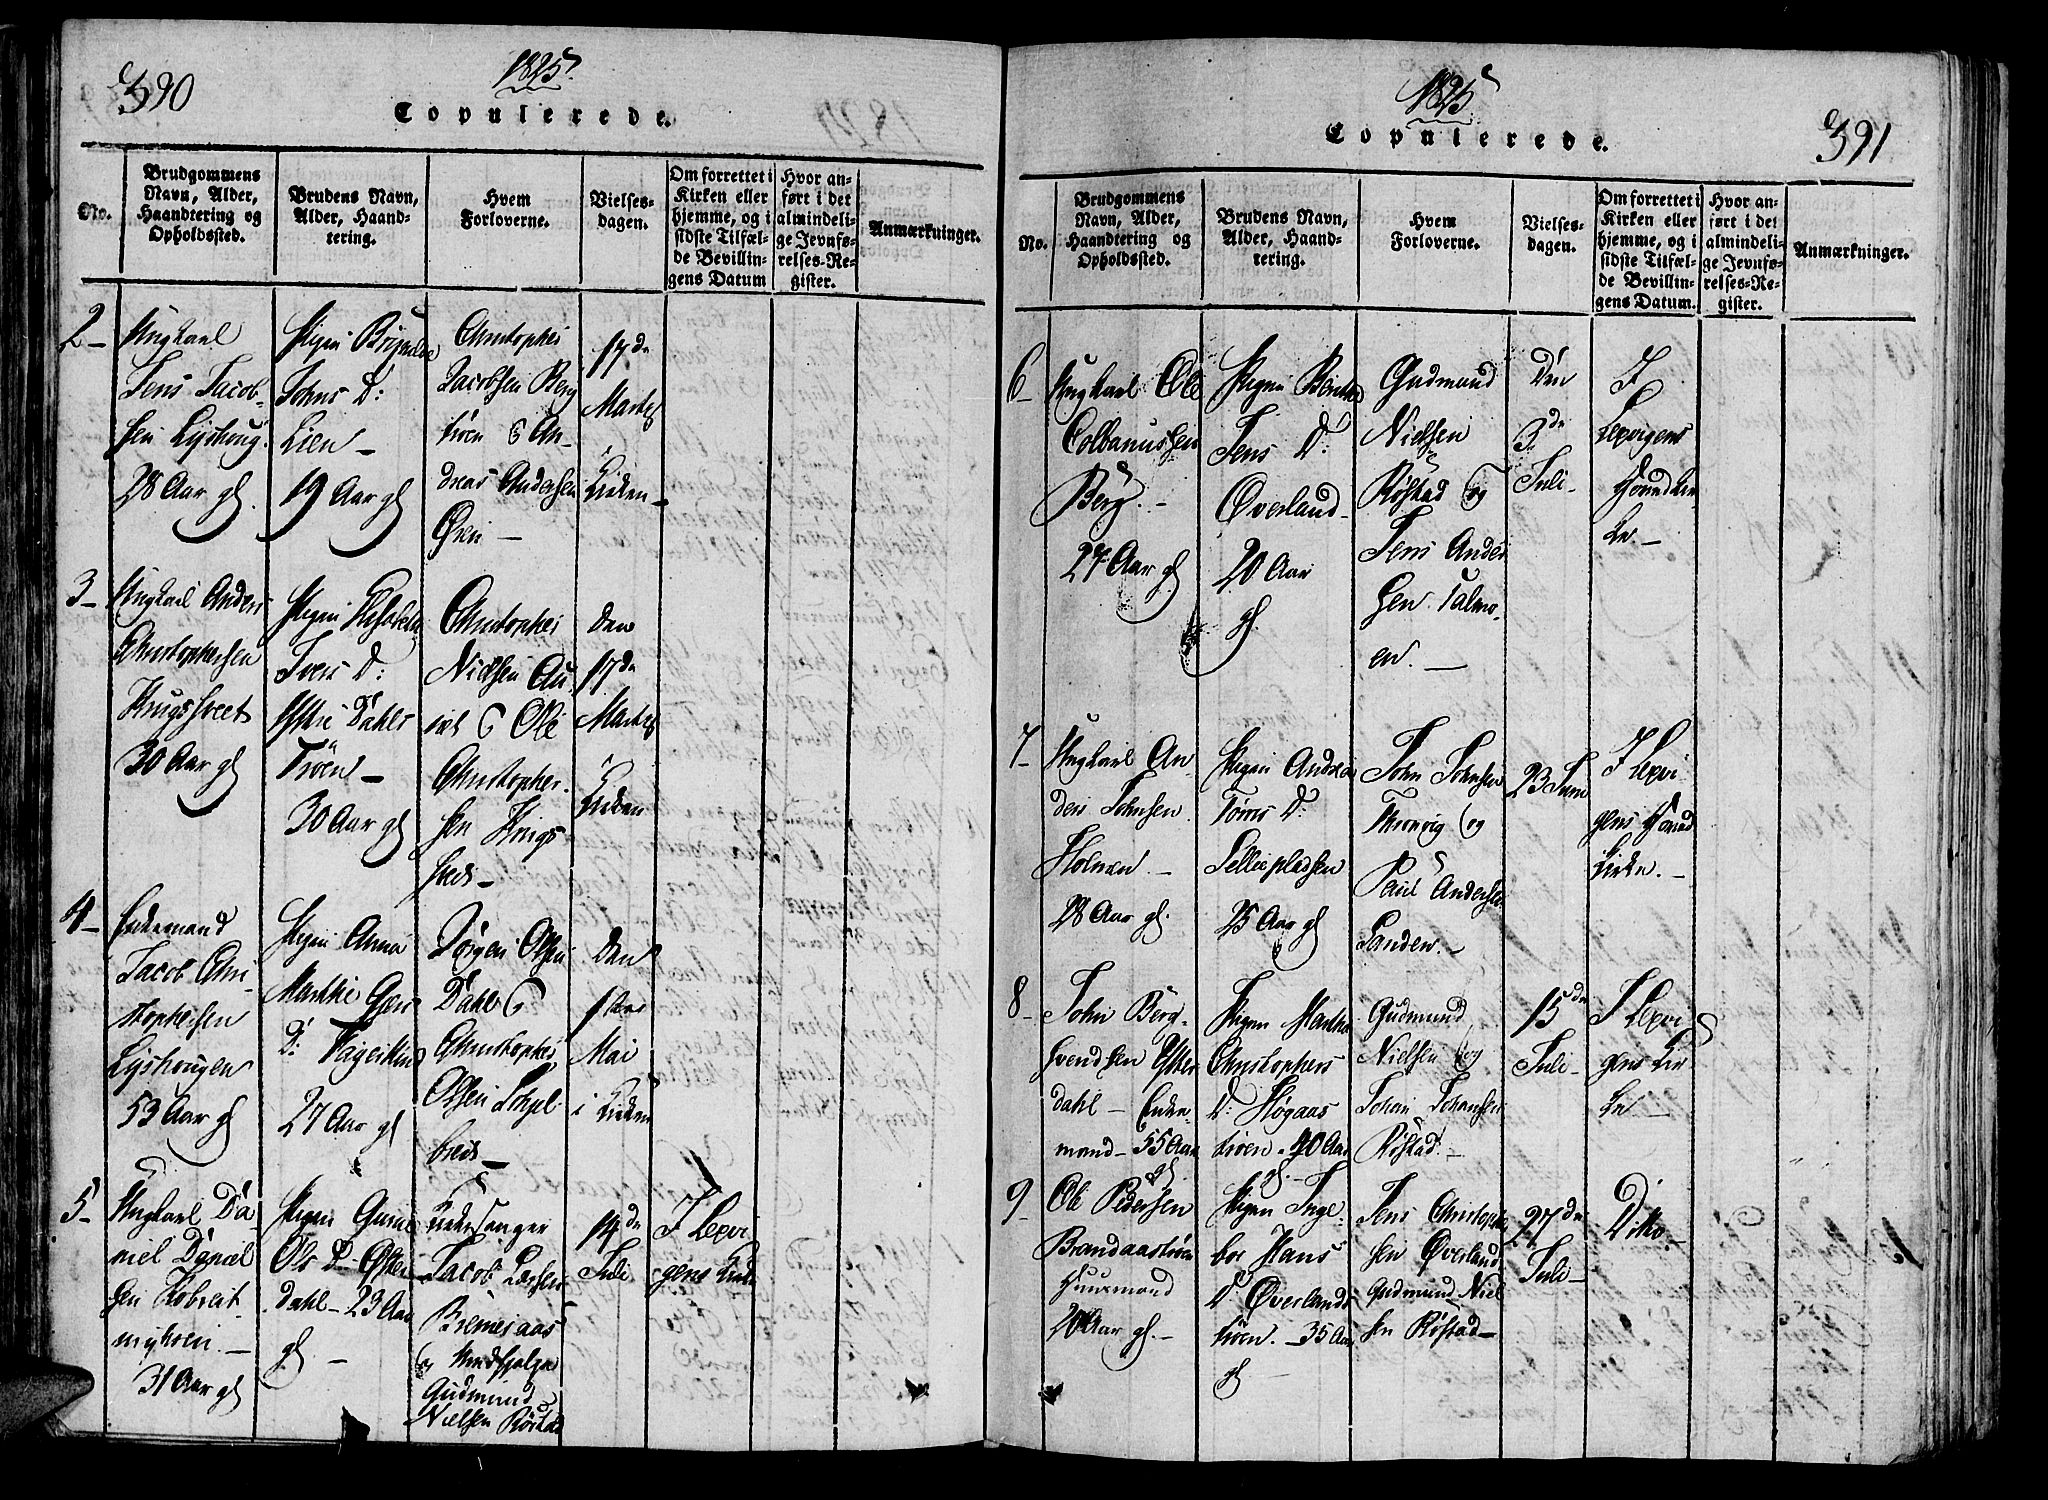 390
1825
Copulerede.
No.
Brudgommens Navn, Alder, Haandtering og Opholdssted.
Brudens Navn, Alder, Haandtering.
Hvem Forloverne.
Vielsesdagen.
Om forrettet i Kirken eller hjemme, og i sidste Tilfælde Bevillingens Datum
Hvor anført i det almindelige Jevnførelses-Register.
Anmærkninger.
2
Ungkarl
Jens Jacob-
sen Lyshoug
28 Aar gl.
Pigen
Johns D:
Lien
19 Aar gl
Christopher
Jacobsen Berg
trøen & An-
dreas Andersen
Øien
17de
Martz
i Kirken
3
Ungkarl Anders
Christophersen
30 Aar gl
Pigen
Ivers D:
Dahls
Trøen
30 Aar gl
Christopher
Nielsen
& Ole
Christopher-
sen
Den
17de
Martz
i Kirken
4
Enkemand
Jacob Chri-
stophersen
Lyshougen
53 Aar gl
Pigen Anna
Marthe
D:
27 Aar gl
Jørgen Olsen
Dahl &
Christopher
Olsen
Den
1ste
Mai
i Kirken
5
Ungkarl Da-
niel Daniel
sen
31 Aar gl
Pigen
Ols D. Øster
dahl - 23 Aar
gl
Kirkesanger
Jacob Larsen
Bremeraas
og
Gudmund
Nielsen Røstad
14de
Juli
I Lexvi
gens Kirke
391
1825
Copulerede.
No.
Brudgommens Navn, Alder, Haandtering og Opholdssted.
Brudens Navn, Alder, Haandtering.
Hvem Forloverne.
Vielsesdagen.
Om forrettet i Kirken eller hjemme, og i sidste Tilfælde Bevillingens Datum.
Hvor anført i det almindelige Jevnførelses-Register.
Anmærkninger.
6
Ungkarl Ole
Colbanussen
Berg.
27 Aar gl
Pigen
Jens D:
Overland
20 Aar
gl.
Gudmund
Nielsen
Røstad og
Jens Ander
sen
Den
3de
Juli
I
Lexvigens
Hovedkir
ke
7
Ungkarl An-
ders Johnsen
Holmen
28 Aar gl.
Pigen Andrea
D:
25 Aar gl
John Johnsen
og
Paul Andersen
Sanden.
23 Juni
I Lexvi
gens Hoved
kirke.
8
John Berg
Svendsen Øster
dahl - Enke
mand - 55 Aar
gl
Pigen Martha
Christophers
D: Høgaas
trøen. 40 Aar
gl.
Gudmund
Nielsen og
Johan Johansen
Røstad.
15de
Juli
I Lexvi
gens Kir
ke
9
Ole Pedersen
Brandaastrøen
Huusmand
Aar gl.
Pigen Inge-
bor Hans
D Overlands
trøen. - 35 Aar
gl
Jens Christopher
sen Overland
Gudmund Niel
sen Røstad
27de
Juli
Ditto